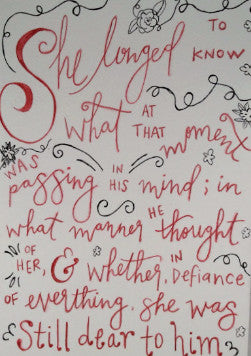 She longed TO KNOW
what AT THAT moment
WAS passing IN HIS mind; in
what manner HE thought
OF HER, & whether, IN DEFIANCE
OF everything, she was
Still dear to him